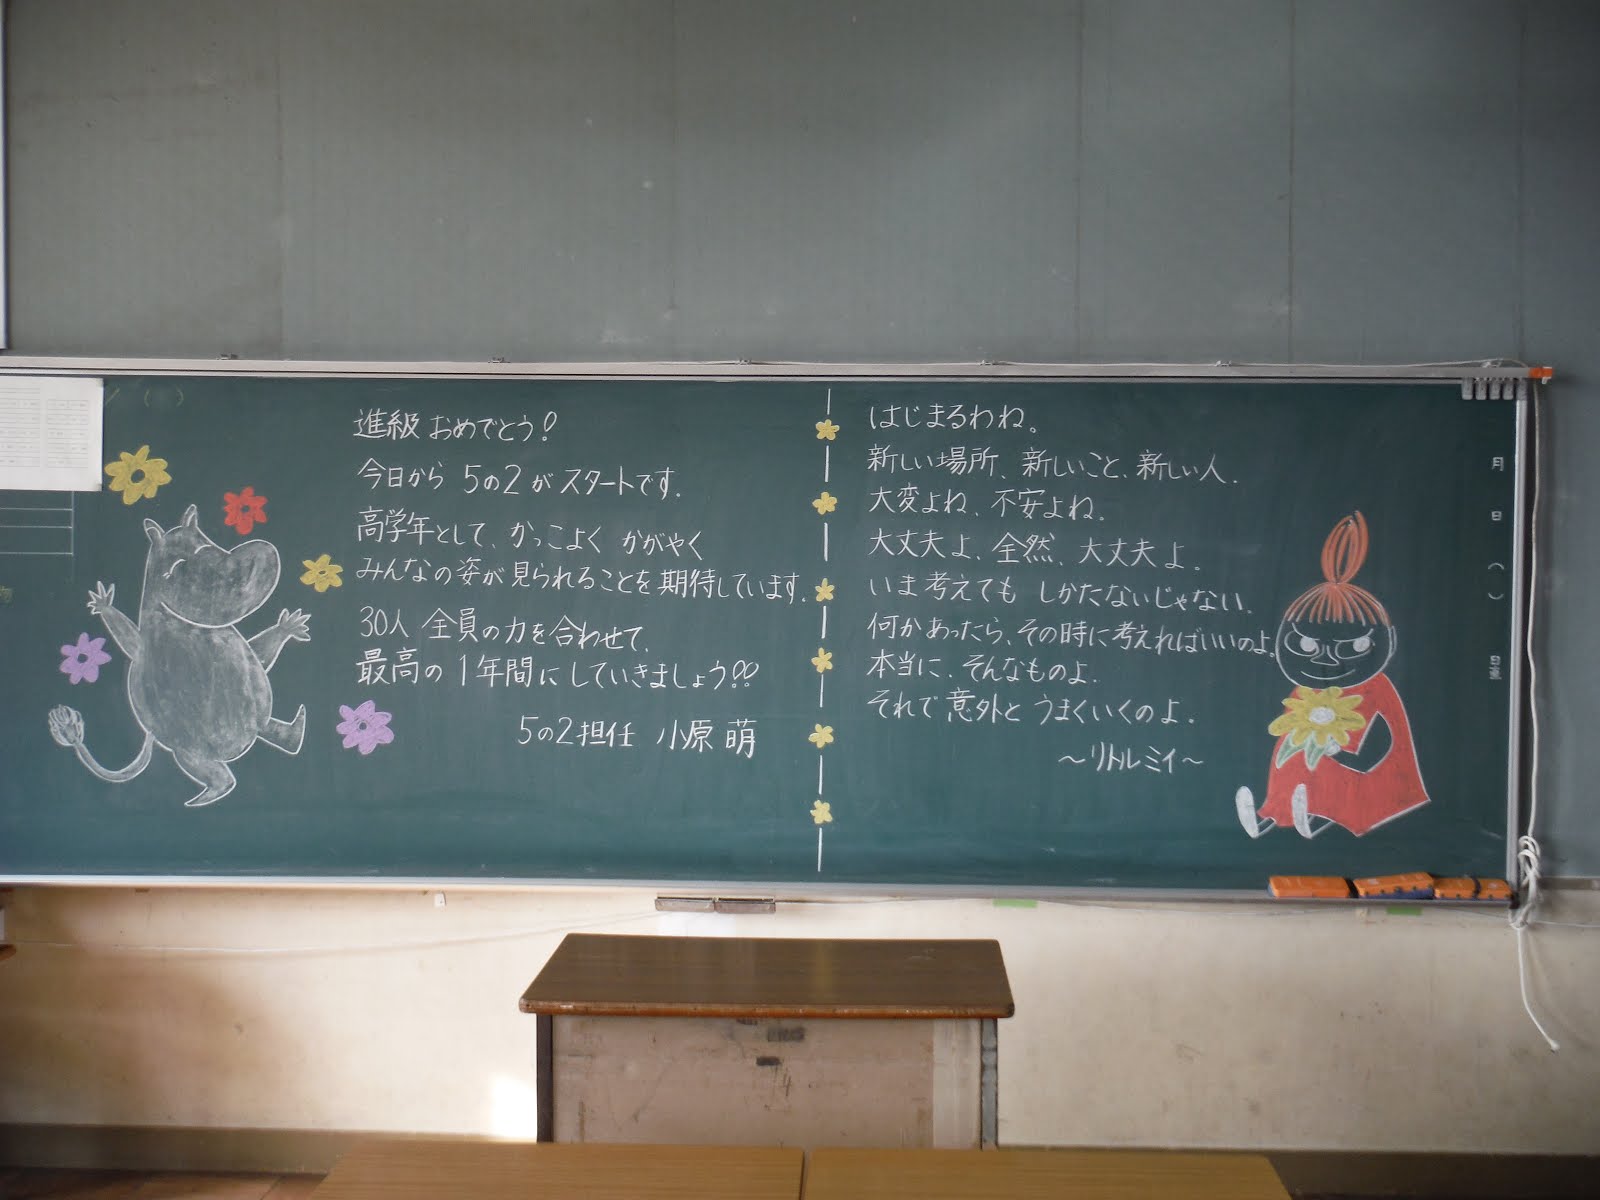 進級おめでとう!
今日から 5の2が スタートです.
高学年として、かっこよく かがやく
みんなの姿が見られることを期待しています.
30人 全員の力を合わせて、
最高の 1年間に していきましょう!!
5の2担任 小原 萌
はじまるわね。
新しい場所、新しいこと、新しい人.
大変よね、不安よね.
大丈夫よ、全然、大丈夫よ.
いま考えても しかたないじゃない.
何かあったら、その時に考えればいいのよ.
本当に、そんなものよ.
それで意外と うまくいくのよ.
〜リトルミイ〜
月
日
( )
日直